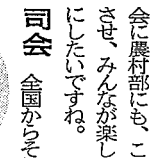 会に農村部にも、こ
させ、みんなが楽し
にしたいですね。
司会　全国からそ